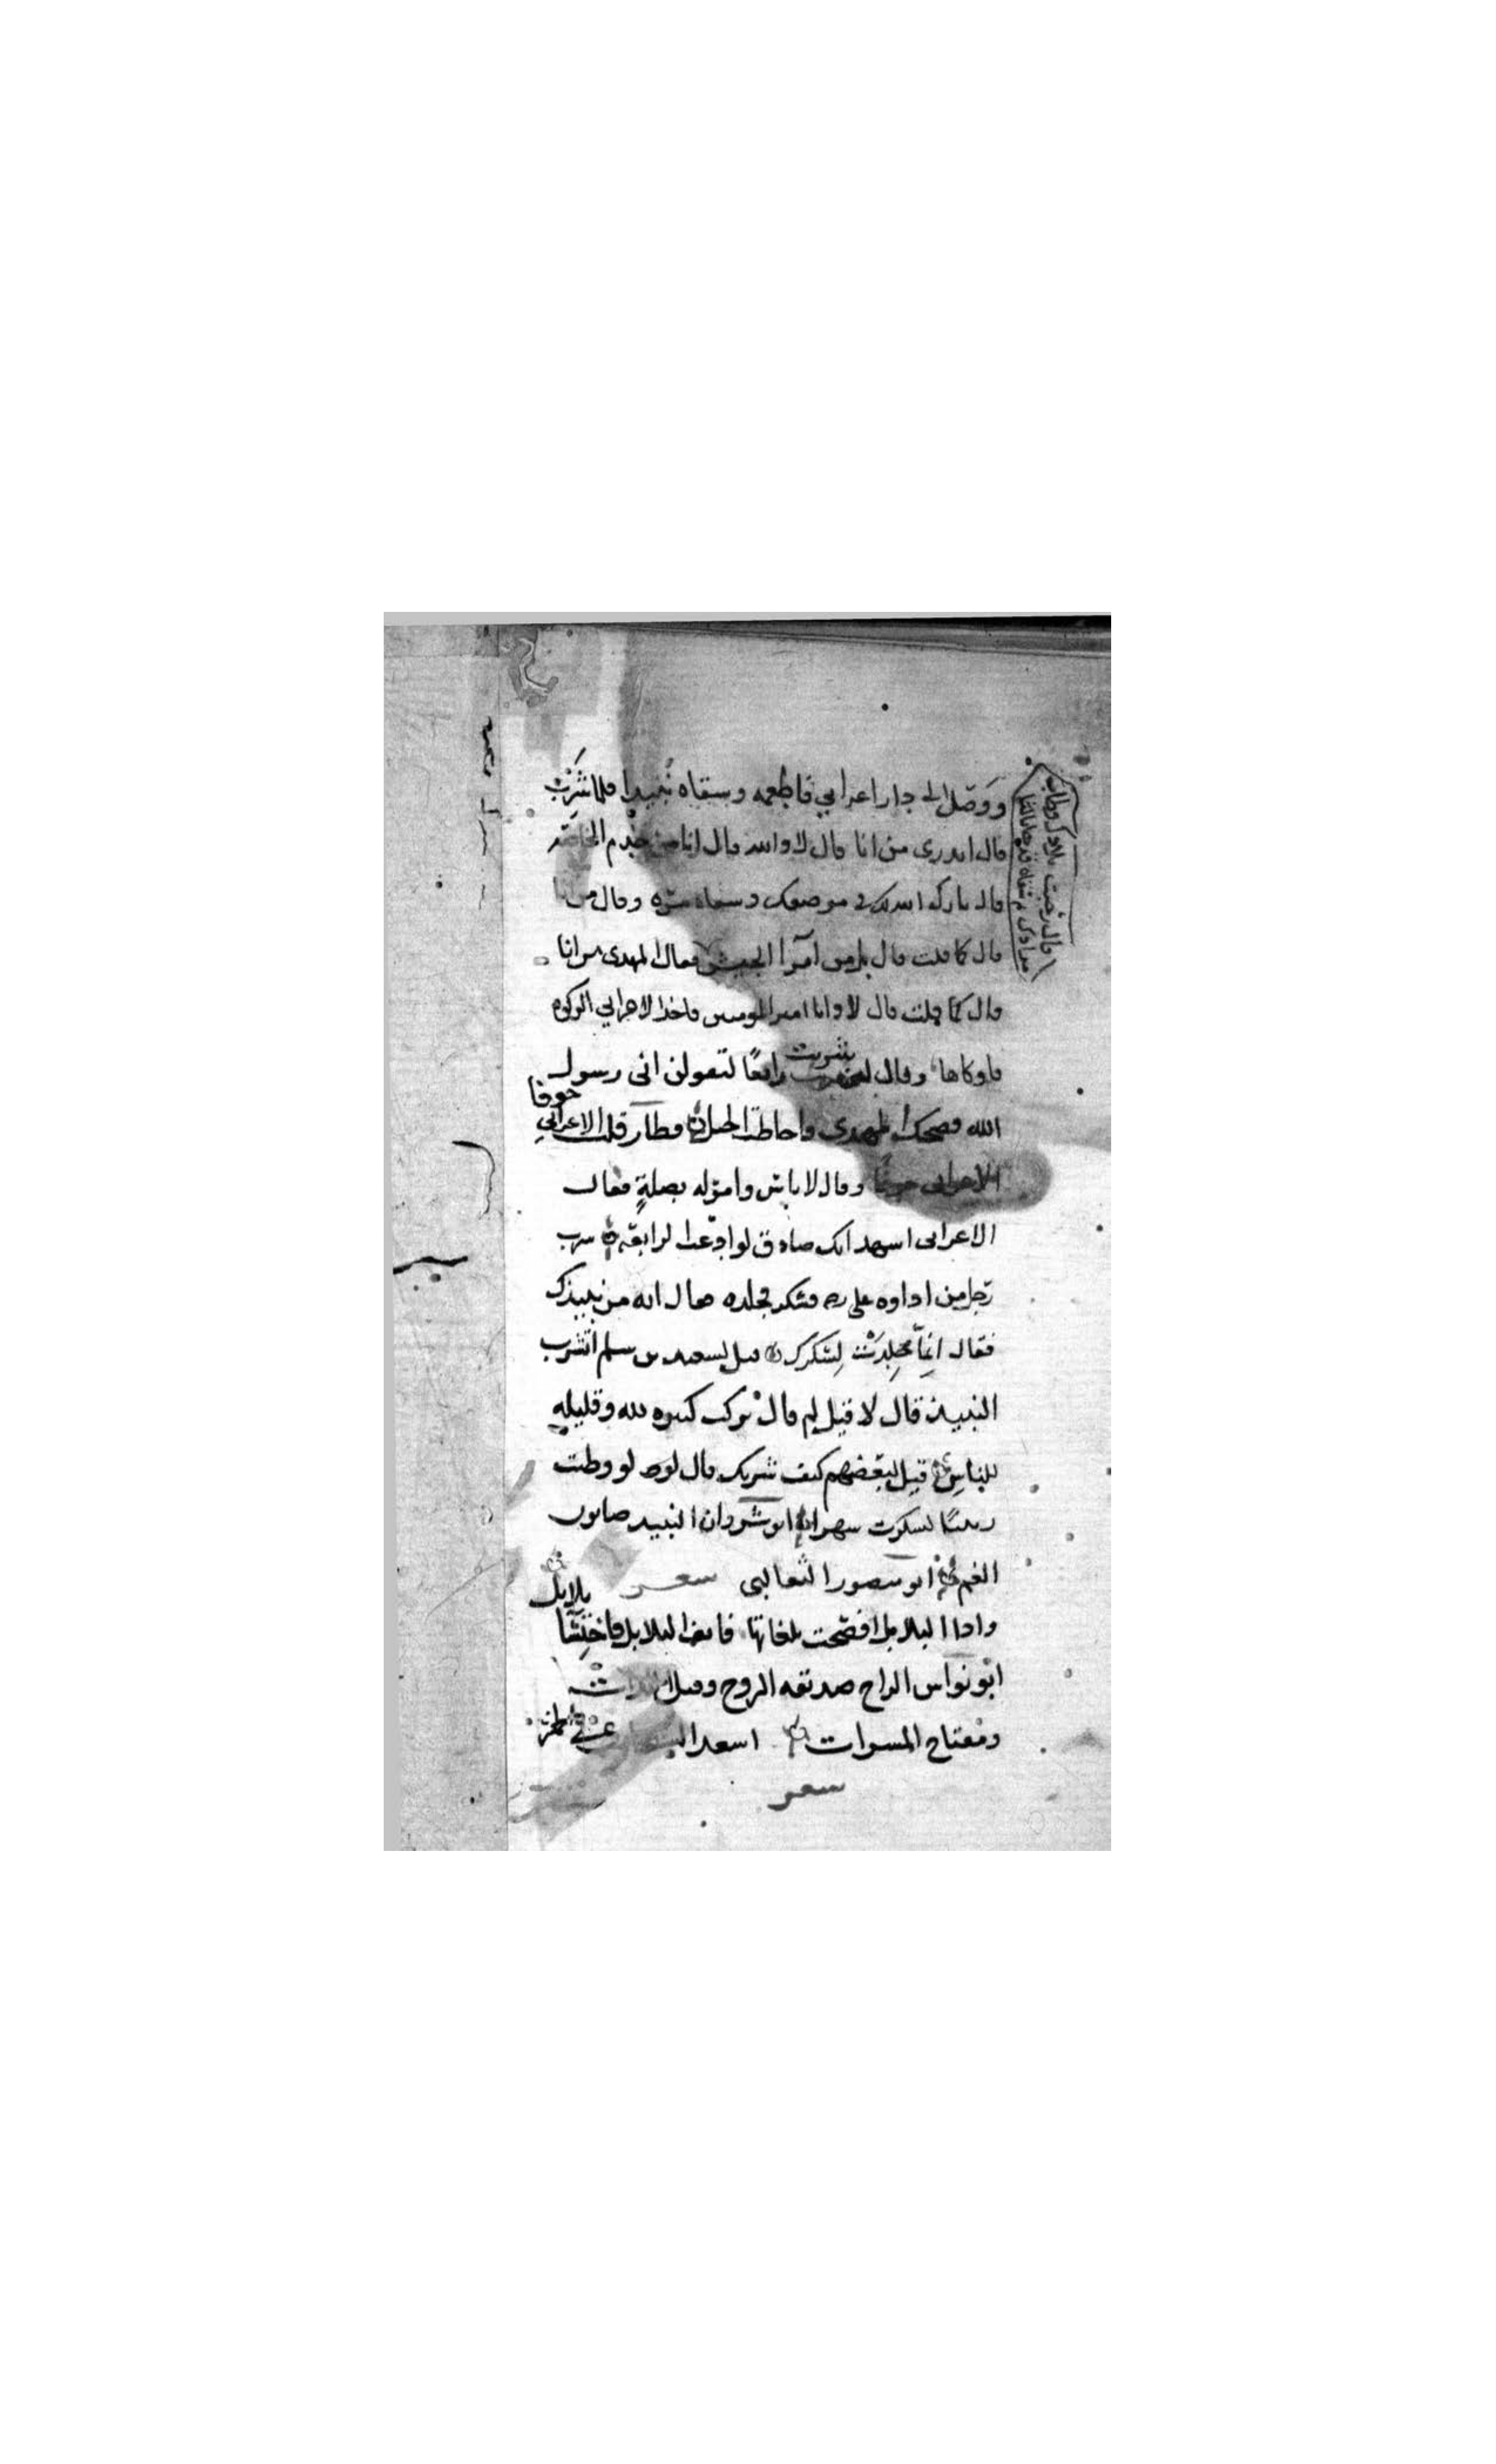 ووصل الى دار اعرابي فاطعمه وسقاه نبيذا فلما شرب
قال اتدرى من انا قال لا والله قال انا من خدم الخاصة
قال بارك الله لك في موضعك وسقاه مرة وقال من انا
قال كما قلت قال بل من امرا الجيش فقال المهدى من انا
قال كما قلت قال لا وانا امير المومنين فاخذ الاعرابي الركوة
فاوكاها وقال لئن شربت رابعًا لتقولن انى رسول
الله فضحك المهدى واحاطت الخيل فطار قلب الاعرابي خوفا
وقال لا باس وامر له بصلةٍ فقال
الاعرابى اشهد انك صادق لو ادعيت الرابعة شرب
رجل من اداوة على فسكر فجلده فقال انه من نبيذك
فقال انما جلدتك لسكرك قيل لسعيد بن سلم اتشرب
النبيذ قال لا قيل لم قال تركت كثيره لله وقليله
للناس قيل لبعضهم كيف شربك قال لو وطئت
زبيبًا لسكرت شهرا انوشروان النبيذ صابون
الغم ابو منصور الثعالبى شعر
واذا البلابل افصحت بلغاتها فانف البلابل باحتسا بلابل
ابو نواس الراح صديقه الروح
ومفتاح المسرات اسعد
شعر
قال رحبت بلادك وطاب
مرادك ثم سقاه قدحا ثالثا